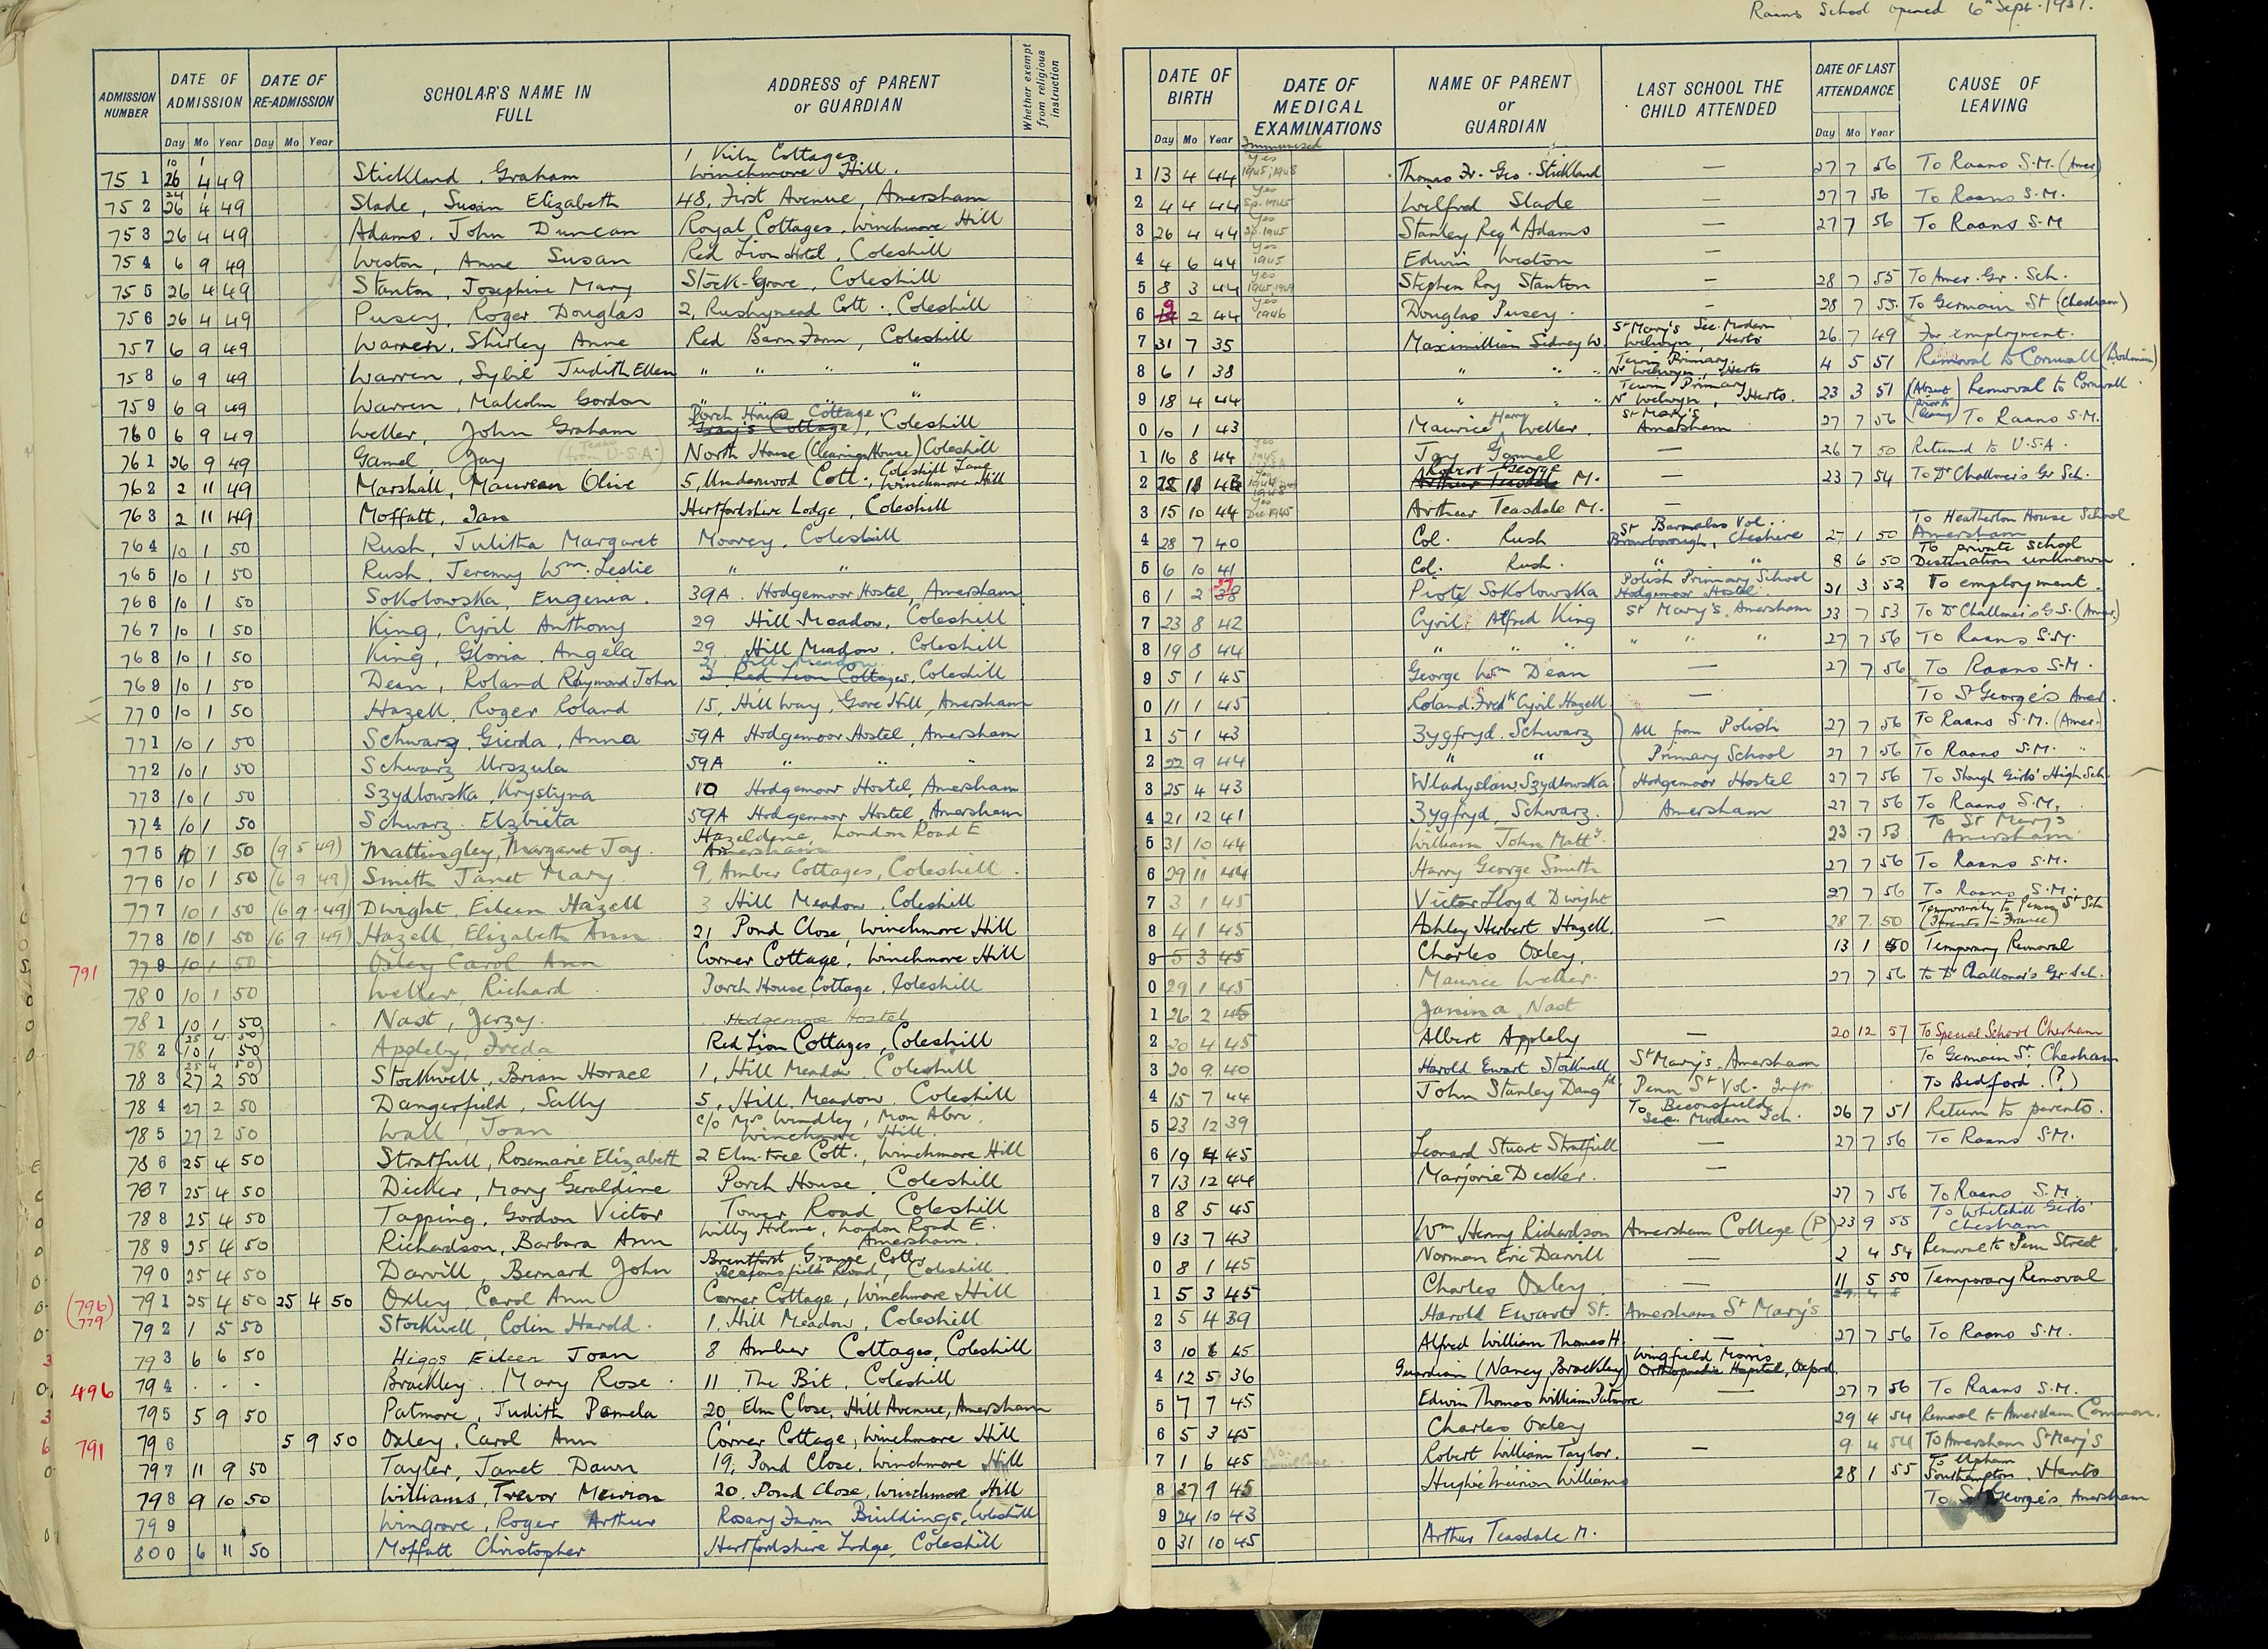 Raans School opened 6th Sept. 1951.
ADMISSION NUMBER | DATE OF ADMISSION Day Mo Year | DATE OF RE-ADMISSION Day Mo Year | SCHOLAR'S NAME IN FULL | ADDRESS of PARENT or GUARDIAN | Whether exempt from religious instruction
751 26 4 49 Stickland, Graham 1 Kiln Cottages Winchmore Hill.
752 26 4 49 Slade, Susan Elizabeth 48, First Avenue, Amersham
753 26 4 49 Adams, John Duncan Royal Cottages, Winchmore Hill
754 6 9 49 Weston, Anne Susan Red Lion Hotel, Coleshill
755 26 4 49 Stanton, Josephine Mary Stock-Grove, Coleshill
756 26 4 49 Pusey, Roger Douglas 2, Rushymead Cott., Coleshill
757 6 9 49 Warren, Shirley Anne Red Barn Farm, Coleshill
758 6 9 49 Warren, Sybil Judith Ellen " " " "
759 6 9 49 Warren, Malcolm Gordon " " " "
760 6 9 49 Weller, John Graham Porch House Cottage (Gray's Cottage), Coleshill
761 26 9 49 Gamel, Jay (from Texas U.S.A.) North House (Clearings House) Coleshill
762 2 11 49 Marshall, Maureen Olive 5, Underwood Cott., Coleshill Lane Winchmore Hill
763 2 11 49 Moffatt, Ian Hertfordshire Lodge, Coleshill
764 10 1 50 Rush, Julitha Margaret Moorcy, Coleshill
765 10 1 50 Rush, Jeremy Wm. Leslie " "
766 10 1 50 Sokolowska, Eugenia. 39A. Hodgemoor Hostel, Amersham
767 10 1 50 King, Cyril Anthony 29 Hill Meadow, Coleshill
768 10 1 50 King, Gloria Angela 29. Hill Meadow. Coleshill
769 10 1 50 Dean, Roland Raymond John 21 Hill Meadow 3 Red Lion Cottages, Coleshill
770 10 1 50 Hazell, Roger Roland 15, Hill Way, Gore Hill, Amersham
771 10 1 50 Schwarz, Gierda, Anna 59A Hodgemoor Hostel, Amersham
772 10 1 50 Schwarz Urszula 59A " " "
773 10 1 50 Szydlowska, Krystyna 10 Hodgemoor Hostel, Amersham
774 10 1 50 Schwarz. Elzbieta 59A Hodgemoor Hostel, Amersham
775 10 1 50 (9 5 49) Mattingley, Margaret Joy. Hazeldene London Road E Amersham
776 10 1 50 (6 9 49) Smith Janet Mary 9, Amber Cottages, Coleshill.
777 10 1 50 (6 9 49) Dwight, Eileen Hazell 3 Hill Meadow, Coleshill
778 10 1 50 (6 9 49) Hazell, Elizabeth Ann 21 Pond Close, Winchmore Hill
791 779 10 1 50 Oxley Carol Ann Corner Cottage, Winchmore Hill
780 10 1 50 Weller, Richard Porch House Cottage, Coleshill
781 10 1 50 Nast, Jerzey. Hodgemoor Hostel
782 (25 4 50) 10 1 50 Appleby, Freda Red Lion Cottages, Coleshill
783 (25 4 50) 27 2 50 Stockwell, Brian Horace 1, Hill Meadow. Coleshill
784 27 2 50 Dangerfield, Sally 5, Hill Meadow. Coleshill
785 27 2 50 Wall, Joan c/o Mrs Windley, Mon Abri. Winchmore Hill.
786 25 4 50 Stratfull, Rosemarie Elizabeth 2 Elm-tree Cott., Winchmore Hill
787 25 4 50 Dicker, Mary Geraldine Porch House, Coleshill
788 25 4 50 Tapping, Gordon Victor Tower Road Coleshill
789 25 4 50 Richardson, Barbara Ann Wilby Holme, London Road E. Amersham.
790 25 4 50 Darvill, Bernard John Brentford Grange Cotts Beaconsfield Road, Coleshill.
(796) 779 791 25 4 50 25 4 50 Oxley, Carol Ann Corner Cottage, Winchmore Hill
792 1 5 50 Stockwell, Colin Harold. 1, Hill Meadow, Coleshill
793 6 6 50 Higgs Eileen Joan 8 Amber Cottages, Coleshill
496 794 . - - Brackley. Mary Rose. 11 The Bit, Coleshill
795 5 9 50 Patmore, Judith Pamela 20, Elm Close, Hill Avenue, Amersham
791 796 5 9 50 Oxley, Carol Ann Corner Cottage, Winchmore Hill
797 11 9 50 Tayler, Janet Dawn 19, Pond Close, Winchmore Hill
798 9 10 50 Williams, Trevor Meirion 20. Pond Close, Winchmore Hill
799 Wingrove, Roger Arthur Rosary Farm Buildings, Coleshill
800 6 11 50 Moffatt Christopher Hertfordshire Lodge, Coleshill
DATE OF BIRTH Day Mo Year | DATE OF MEDICAL EXAMINATIONS | NAME OF PARENT or GUARDIAN | LAST SCHOOL THE CHILD ATTENDED | DATE OF LAST ATTENDANCE Day Mo Year | CAUSE OF LEAVING
Immunised
1 13 4 44 Yes 1945; 1948 Thomas Fr. Geo. Stickland — 27 7 56 To Raans S.M. (Amer)
2 4 4 44 Yes Sp. 1945 Wilfred Slade — 27 7 56 To Raans S.M.
3 26 4 44 Yes Sp. 1945 Stanley Regd Adams — 27 7 56 To Raans S.M
4 4 6 44 Yes 1945 Edwin Weston —
5 8 3 44 Yes 1945, 1949 Stephen Roy Stanton — 28 7 55 To Amer. Gr. Sch.
6 9 2 44 Yes 1946 Douglas Pusey. — 28 7 55. To Germain St (Chesham)
7 31 7 35 Maximillian Sidney W. St Mary's Sec. Modern Welwyn, Herts 26 7 49 For employment.
8 6 1 38 " " " Tewin Primary, Nr Welwyn, Herts 4 5 51 Removal to Cornwall (Bodmin)
9 18 4 44 " " " Tewin Primary Nr Welwyn, Herts. 23 3 51 (Absent prior to leaving) Removal to Cornwall.
0 10 1 43 Maurice Harry Weller. St Mary's Amersham 27 7 56 To Raans S.M.
1 16 8 44 Yes 1945 U.S.A Jay Gamel — 26 7 50 Returned to U.S.A.
2 Robert George Arthur Teasdale M. — 23 7 54 To Dr Challoner's Gr Sch.
3 15 10 44 Yes Dec 1945 Arthur Teasdale M. —
4 28 7 40 Col. Rush St Barnabas Vol. Cheshire 27 1 50 To Heatherton House School Amersham
5 6 10 41 Col. Rush. " " 8 6 50 To private school Destination unknown.
6 1 2 37 38 Piotr Sokolowska Polish Primary School Hodgemoor Hostel 21 3 52 To employment.
7 23 8 42 Cyril Alfred King St Mary's, Amersham 23 7 53 To Dr Challoner's G.S. (Amer.)
8 19 8 44 " " " " " " 27 7 56 To Raans S.M.
9 5 1 45 George Wm Dean — 27 7 56 To Raans S.M.
0 11 1 45 Roland Fredk Cyril Hazell — To St George's Amer.
1 5 1 43 Zygfryd. Schwarz All from Polish 27 7 56 To Raans S.M. (Amer.)
2 22 9 44 " " Primary School 27 7 56 To Raans S.M. "
3 25 4 43 Wladyslaw Szydlowska Hodgemoor Hostel 27 7 56 To Slough Girls' High Sch.
4 21 12 41 Zygfryd, Schwarz. Amersham 27 7 56 To Raans S.M.
5 31 10 44 William John Matty. 23 7 53 To St Mary's Amersham
6 29 11 44 Harry George Smith 27 7 56 To Raans S.M.
7 3 1 45 Victor Lloyd Dwight 27 7 56 To Raans S.M.
8 4 1 45 Ashley Herbert Hazell. — 28 7. 50 Temporarily to Penn St Sch (Parents in France)
9 5 3 45 Charles Oxley. 13 1 50 Temporary Removal
0 29 1 45 Maurice Weller. 27 7 56 to Dr Challoner's Gr. Sch.
1 26 2 45 Janina Nast
2 20 4 45 Albert Appleby — 20 12 57 To Special School Chesham
3 20 9 40 Harold Ewart Stockwell St Mary's, Amersham To Germain St. Chesham
4 15 7 44 John Stanley Dangfd Penn St Vol. Infts. To Bedford. (?)
5 23 12 39 To Beaconsfield Sec. Modern Sch. 26 7 51 Return to parents.
6 19 4 45 Leonard Stuart Stratfull — 27 7 56 To Raans S.M.
7 13 12 44 Marjorie Decker. —
8 8 5 45 27 7 56 To Raans S.M.
9 13 7 43 Wm Henry Richardson Amersham College (P) 23 9 55 To Whitehill Girls' Chesham
0 8 1 45 Norman Eric Darvill — 2 4 54 Removal to Penn Street
1 5 3 45 Charles Oxley — 11 5 50 Temporary Removal
2 5 4 39 Harold Ewart St. Amersham St Mary's
3 10 45 Alfred William Thomas H. — 27 7 56 To Raans S.M.
4 12 5 36 Guardian (Nancy Brackley) Wingfield Morris Orthopaedic Hospital, Oxford.
5 7 7 45 Edwin Thomas William Patmore — 27 7 56 To Raans S.M.
6 5 3 45 Charles Oxley 29 4 54 Removal to Amersham Common.
7 1 6 45 No. Robert William Taylor. — 9 4 54 To Amersham St Mary's
8 27 9 45 Hughie Meirion Williams 28 1 55 To Upham Southampton, Hants
9 24 10 43 To St George's, Amersham
0 31 10 45 Arthur Teasdale M.